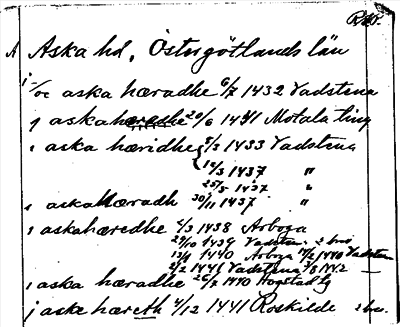 RAP.
A Aska hd, Östergötlands län
i aska hæradhe 6/7 1432 Vadstena
j askahæredhe 20/6 1441 Motala ting
i aska häridhe 5/3 1433 Vadstena
12/3 1437 "
25/5 1437 "
i askahæradh 30/11 1437 "
i askahæredhe 2/3 1438 Arboga
29/10 1439 Vadsten 2 brev
13/9 1440 Arboga 14/2 1440 Vadstena
2/2 1441 Vadstena 7/8 1442
i aska hæradhe 26/7 1440 Hogstad tg
j aske hæreth 4/12 1441 Roskilde 2 brev.